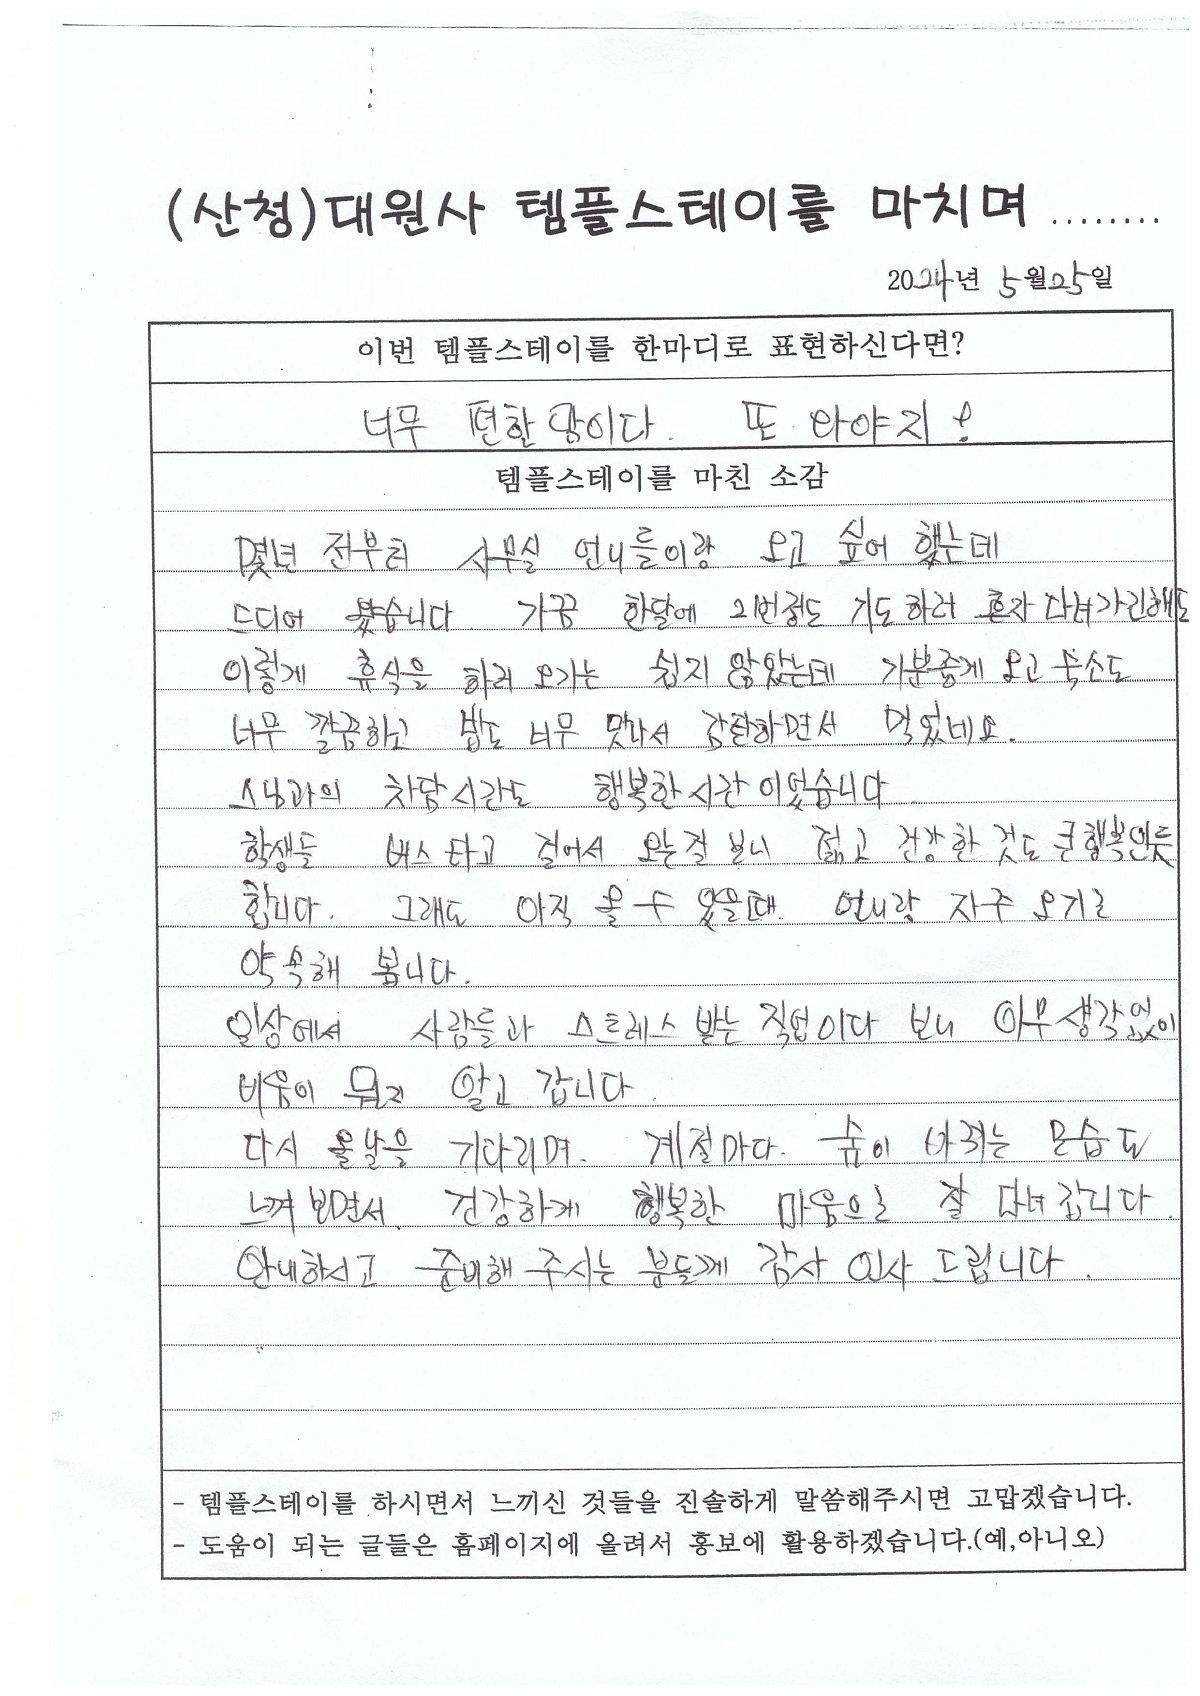 (산청)대원사 템플스테이를 마치며 ........
2024년 5월25일
이번 템플스테이를 한마디로 표현하신다면?
너무 편한 맘이다. 또 와야지!
템플스테이를 마친 소감
몇년 전부터 사무실 언니들이랑 오고 싶어 했는데
드디어 왔습니다 가끔 한달에 2번정도 기도하러 혼자 다녀가긴해도
이렇게 휴식을 하러 오기는 쉽지 않았는데 기분좋게 오고 숙소도
너무 깔끔하고 밥도 너무 맛나서 감탄하면서 먹었네요.
스님과의 차담시간도 행복한 시간이었습니다
학생들 버스타고 걸어서 오는걸 보니 젊고 건강한 것도 큰행복인듯
합니다. 그래도 아직 올 수 있을때. 언니랑 자주 오기로
약속해 봅니다.
일상에서 사람들과 스트레스 받는 직업이다 보니 아무생각없이
비움이 뭔지 알고 갑니다.
다시 올날을 기다리며. 계절마다. 숲이 바뀌는 모습도
느껴보면서. 건강하게 행복한 마음으로 잘 다녀갑니다.
안내하시고 준비해 주시는 분들께 감사 인사 드립니다.
- 템플스테이를 하시면서 느끼신 것들을 진솔하게 말씀해주시면 고맙겠습니다.
- 도움이 되는 글들은 홈페이지에 올려서 홍보에 활용하겠습니다.(예,아니오)